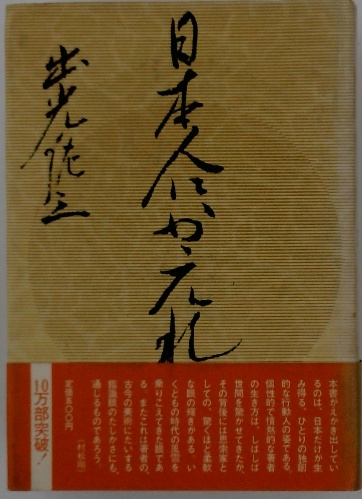 日本人にかえれ
出光佐三
本書がえがき出してい
るのは、日本だけが生
み得る、ひとりの独創
的な行動人の姿である。
個性的で情熱的な著者
の生き方は、しばしば
世間を驚かせてきたが、
その背後には思索家と
しての、驚くほど柔軟
な眼の輝きがある　い
くどもの時代の風雪を
乗りこえてきた眼であ
る　またこれは著者の、
古今の美術にたいする
鑑識眼のたしかさにも、
通じるものであろう。
(村松剛)
定価五〇〇円
10万部突破!